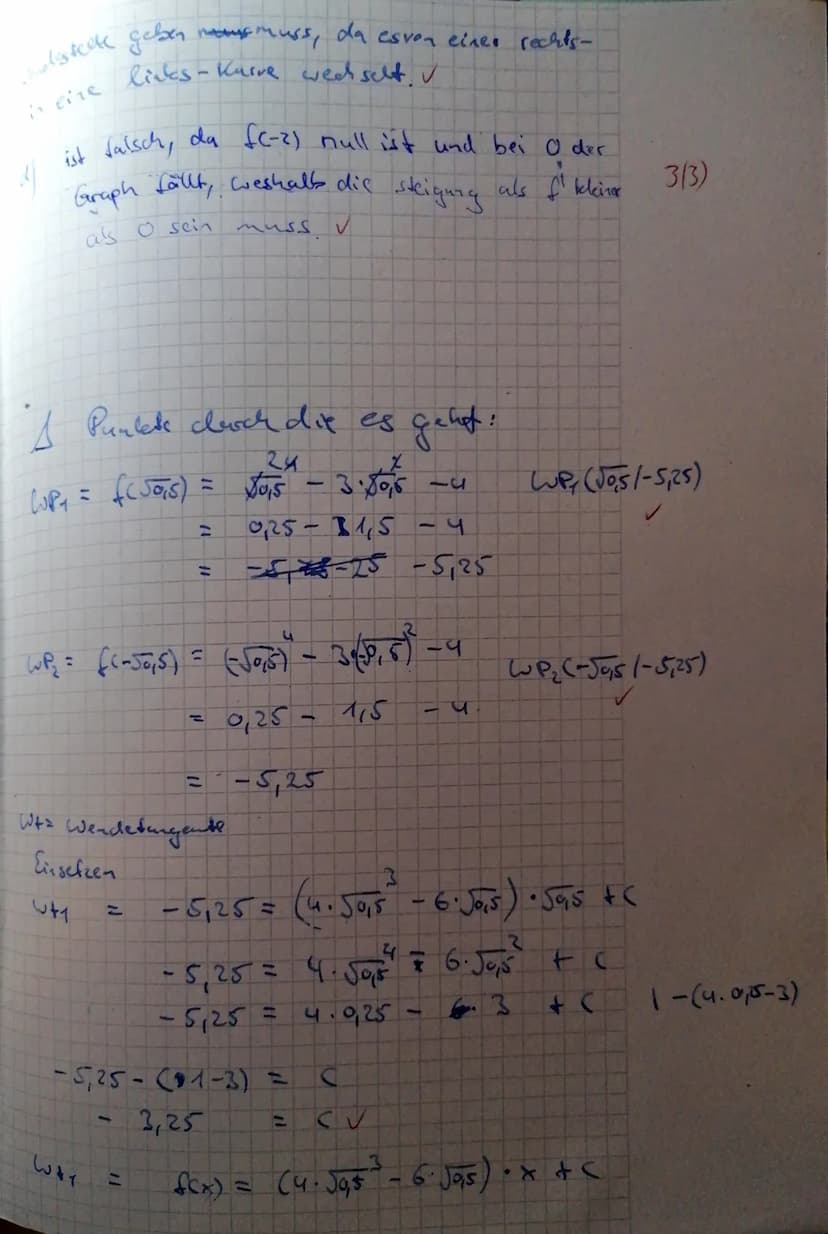 geben muss, da es von einer rechts-
in eine links-Kurve wechselt. ✓
ist falsch, da f(-2) null ist und bei 0 der
Graph fällt, weshalb die steigung als f' kleiner 3(3)
als 0 sein muss. ✓
Punkte durch die es geht:
WP₁ = f(√0,5) = √0,5⁴ - 3·√0,5² - 4 WP₁(√0,5/-5,25) ✓
= 0,25 - 1,5 - 4
= -5,25
WP₂ = f(-√0,5) = (-√0,5)⁴ - 3·(-√0,5)² - 4 WP₂(-√0,5/-5,25) ✓
= 0,25 - 1,5 - 4
= -5,25
Wt = Wendetangente
Einsetzen
Wt₁ = -5,25 = (4·√0,5³ - 6·√0,5)·√0,5 + c
-5,25 = 4·√0,5⁴ - 6·√0,5² + c
-5,25 = 4·0,25 - 3 + c | -(4·0,25-3)
-5,25 - (1-3) = c
- 3,25 = c ✓
Wt₁ = f(x) = (4·√0,5³ - 6·√0,5)·x + c